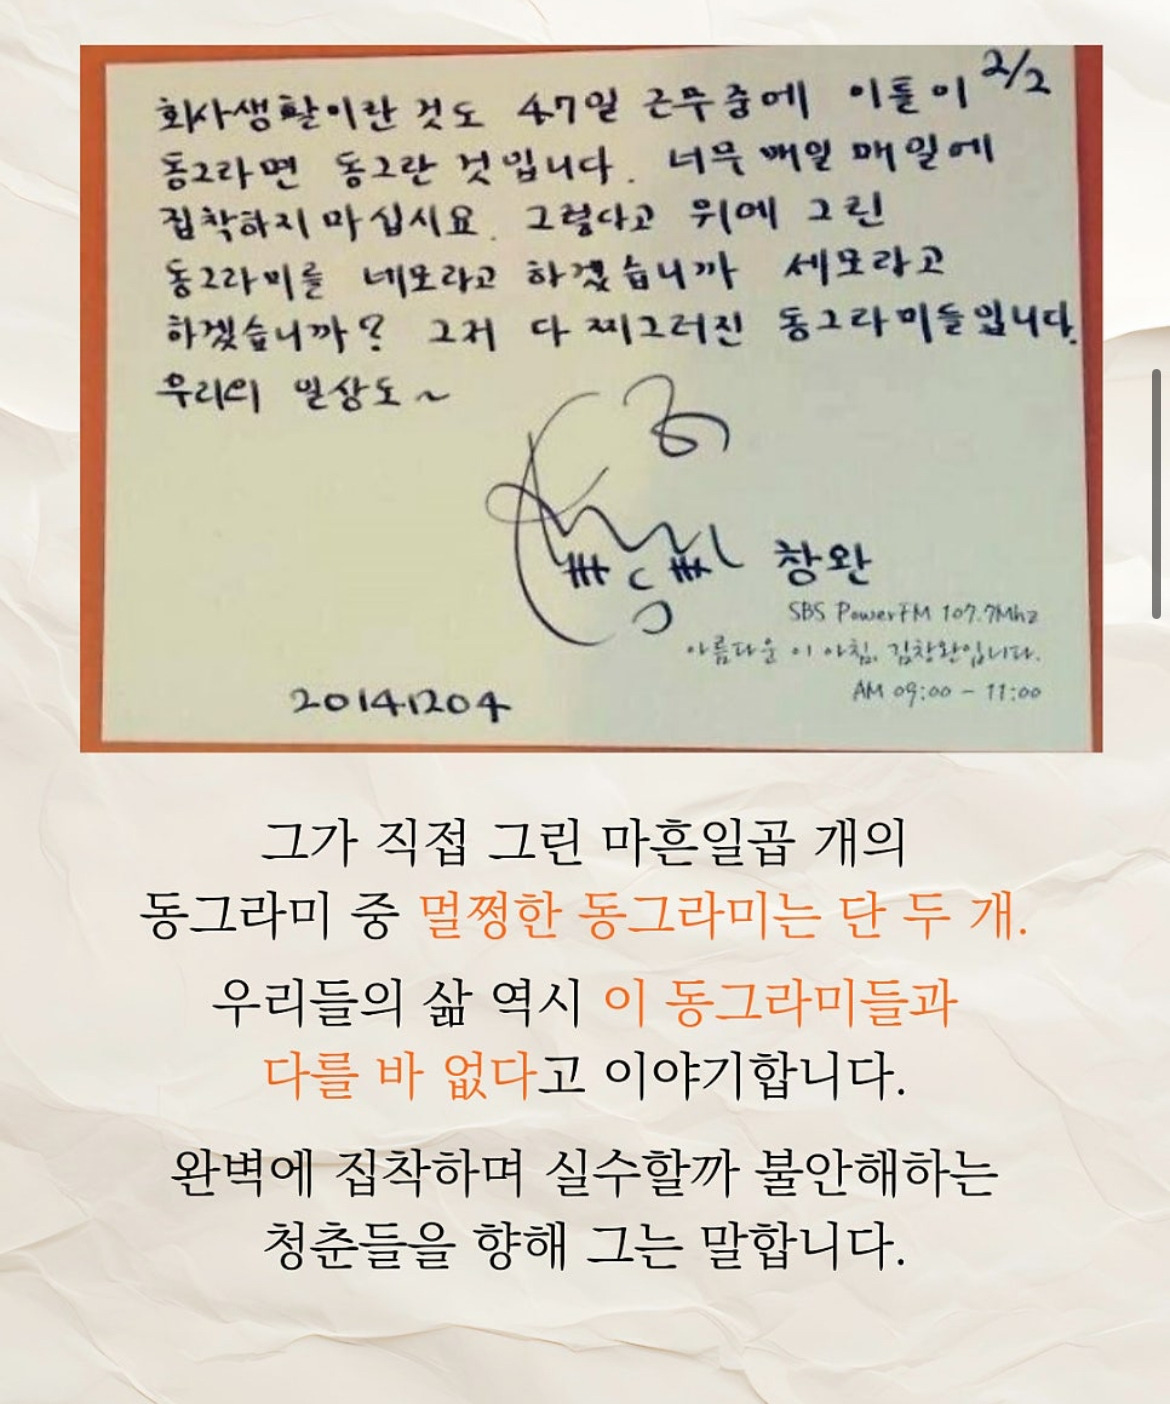 2/2
회사생활이란 것도 47일 근무중에 이틀이
동그라면 동그란 것입니다. 너무 매일 매일에
집착하지 마십시요. 그렇다고 위에 그린
동그라미를 네모라고 하겠습니까 세모라고
하겠습니까? 그저 다 찌그러진 동그라미들입니다.
우리의 일상도~
창완
SBS PowerFM 107.7Mhz
아름다운 이 아침, 김창완입니다.
AM 09:00 - 11:00
20141204
그가 직접 그린 마흔일곱 개의
동그라미 중 멀쩡한 동그라미는 단 두 개.
우리들의 삶 역시 이 동그라미들과
다를 바 없다고 이야기합니다.
완벽에 집착하며 실수할까 불안해하는
청춘들을 향해 그는 말합니다.